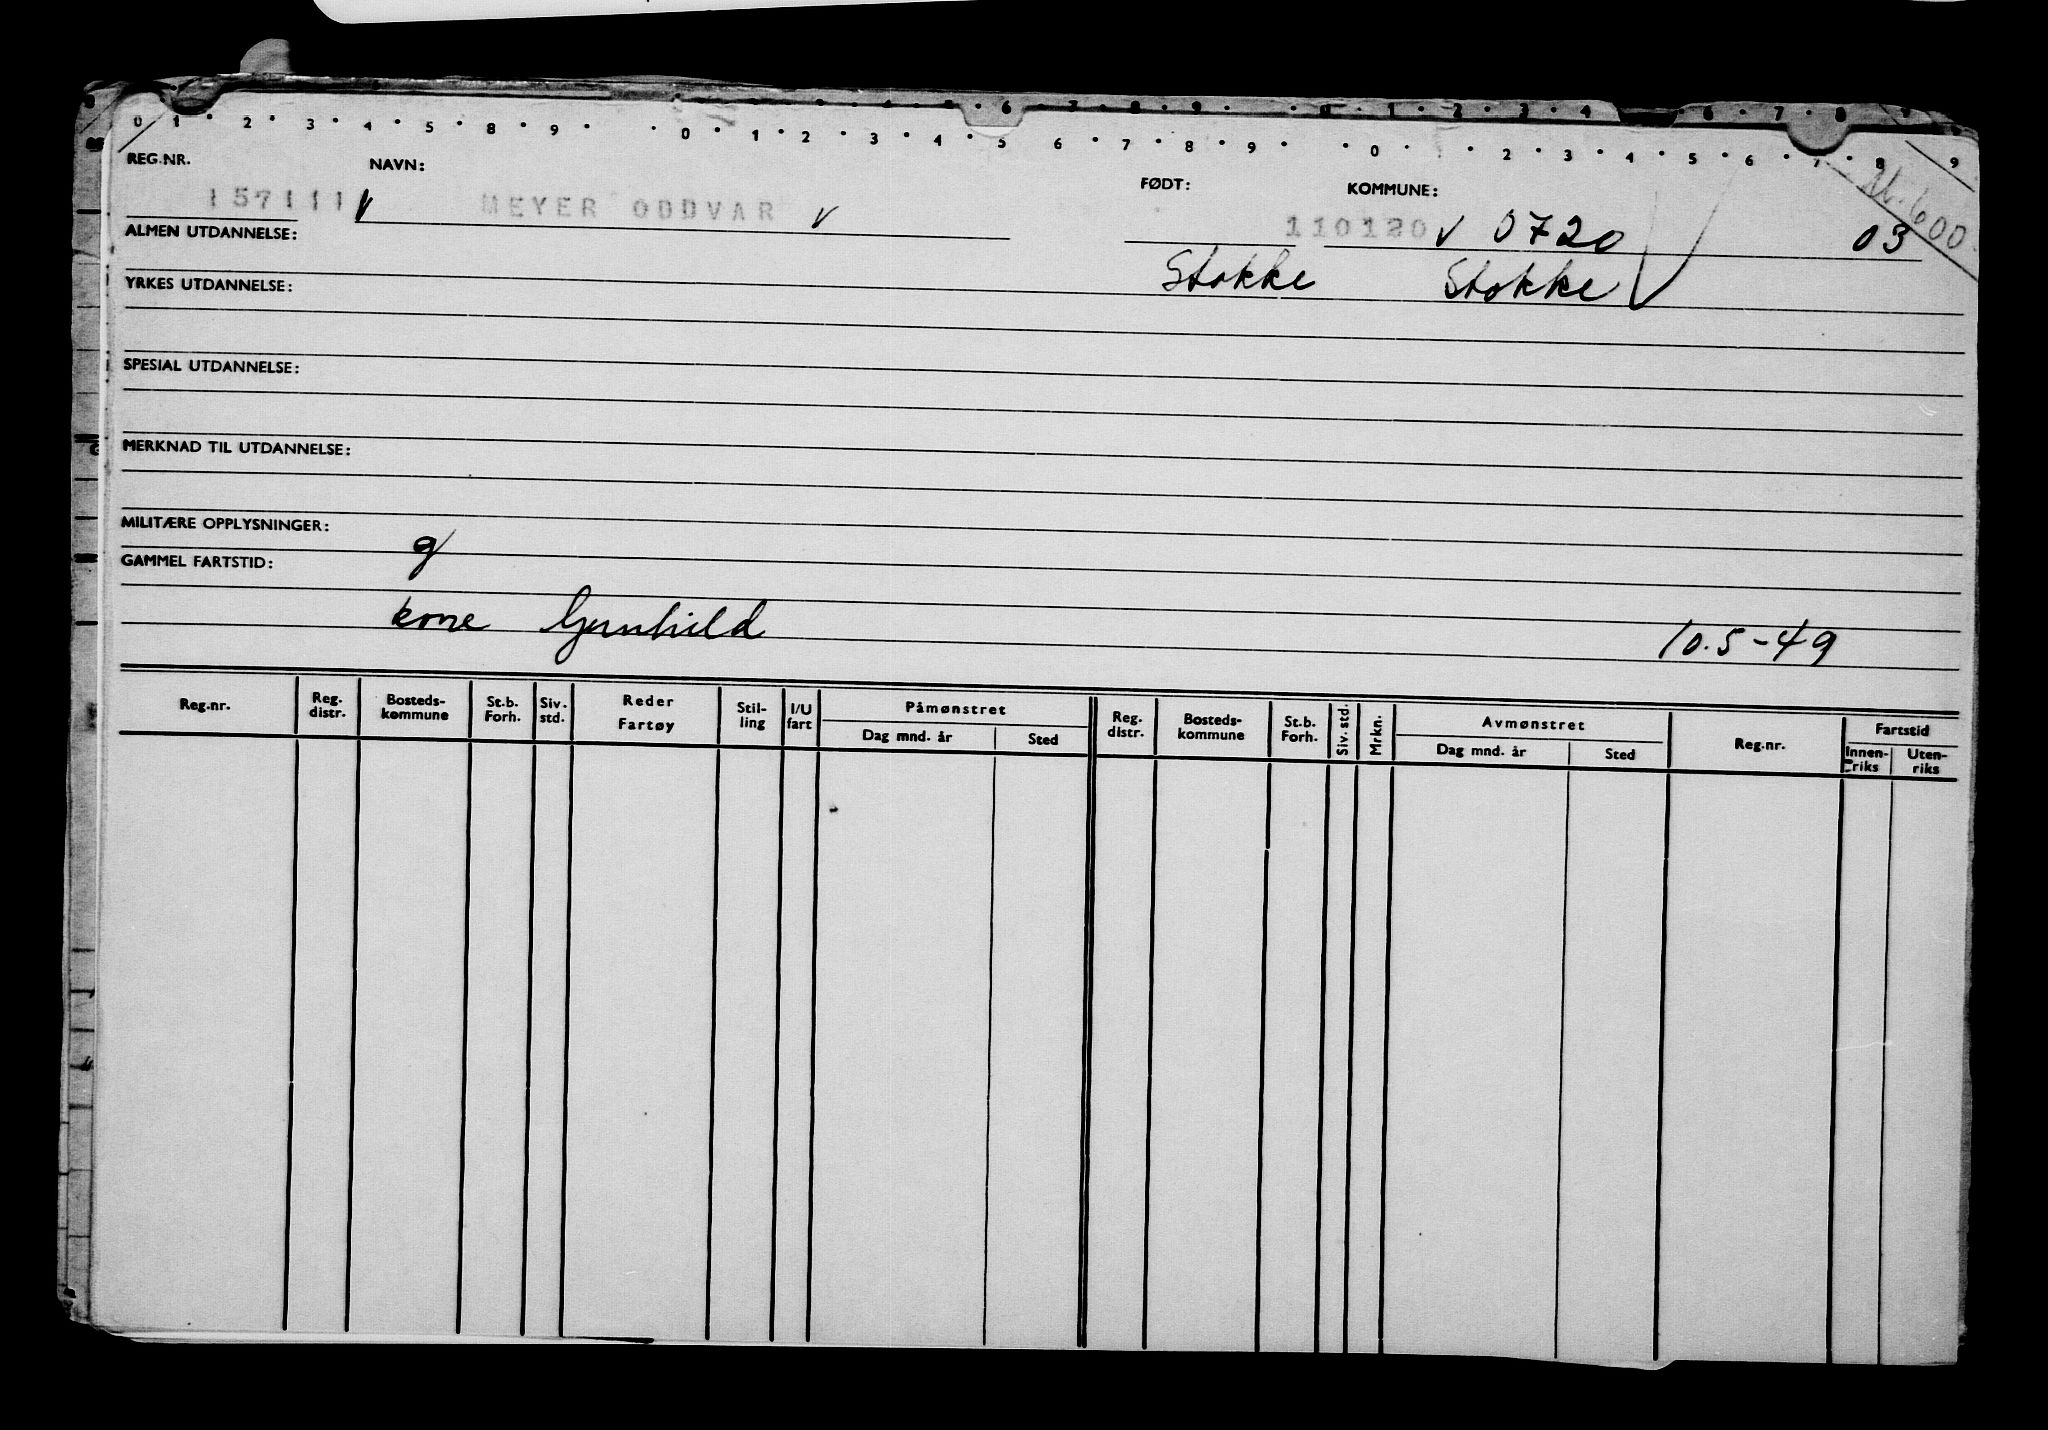 0 1 2 3 4 5 6 7 8 9 0 1 2 3 4 5 6 7 8 9
0 1 2 3 4 5 8 9 0 1 2 3 4 5 6 7 8 9 0 2 3 4 5 6 7 8 9
REG.NR. NAVN: FØDT: KOMMUNE:
157111 MEYER ODDVAR 110120 0720 03
ALMEN UTDANNELSE: Stokke Stokke
YRKES UTDANNELSE:
SPESIAL UTDANNELSE:
MERKNAD TIL UTDANNELSE:
MILITÆRE OPPLYSNINGER:
g
GAMMEL FARTSTID:
kone Gunhild 10.5-49
Reg.nr. Reg. distr. Bosteds- kommune St.b. Forh. Siv. std. Reder Fartøy Stil- ling I/U fart Påmønstret Reg. distr. Bosteds- kommune St.b. Forh. Siv. std. Mrkn. Avmønstret Reg.nr. Fartstid
Dag mnd. år Sted Dag mnd. år Sted Innen- riks Uten- riks